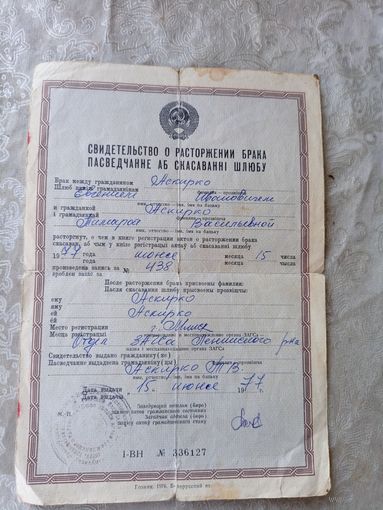 СВИДЕТЕЛЬСТВО О РАСТОРЖЕНИИ БРАКА
ПАСВЕДЧАННЕ АБ СКАСАВАННІ ШЛЮБУ
Брак между гражданином Аскирко
Шлюб паміж грамадзянінам
Евгением Ивановичем
имя, отчество
и гражданкой Аскирко
і грамадзянкай
Тамарой Васильевной
имя, отчество
расторгнут, о чем в книге регистрации актов о расторжении брака
скасаваны, аб чым у кнізе рэгістрацыі актаў аб скасаванні шлюбу
1977 года июня месяца 15 числа
года месяца числа
произведена запись за № 438
зроблен запіс за
После расторжения брака присвоены фамилии:
Пасля скасавання шлюбу прысвоены прозвішчы:
ему Аскирко
яму
ей Аскирко
ёй
Место регистрации г. Минск
Месца рэгістрацыі
Отдел ЗАГСа Ленинского р-на
Свидетельство выдано гражданину(ке)
Пасведчанне выдадзена грамадзяніну(цы)
Аскирко Т.В.
Дата выдачи 15 июня 1977 г.
Дата выдачы
М. П.
Заведующий отделом (бюро)
записи актов гражданского состояния
Загадчык аддзела (бюро)
запісу актаў грамадзянскага стану
I-ВН № 336127
Гознак. 1976.